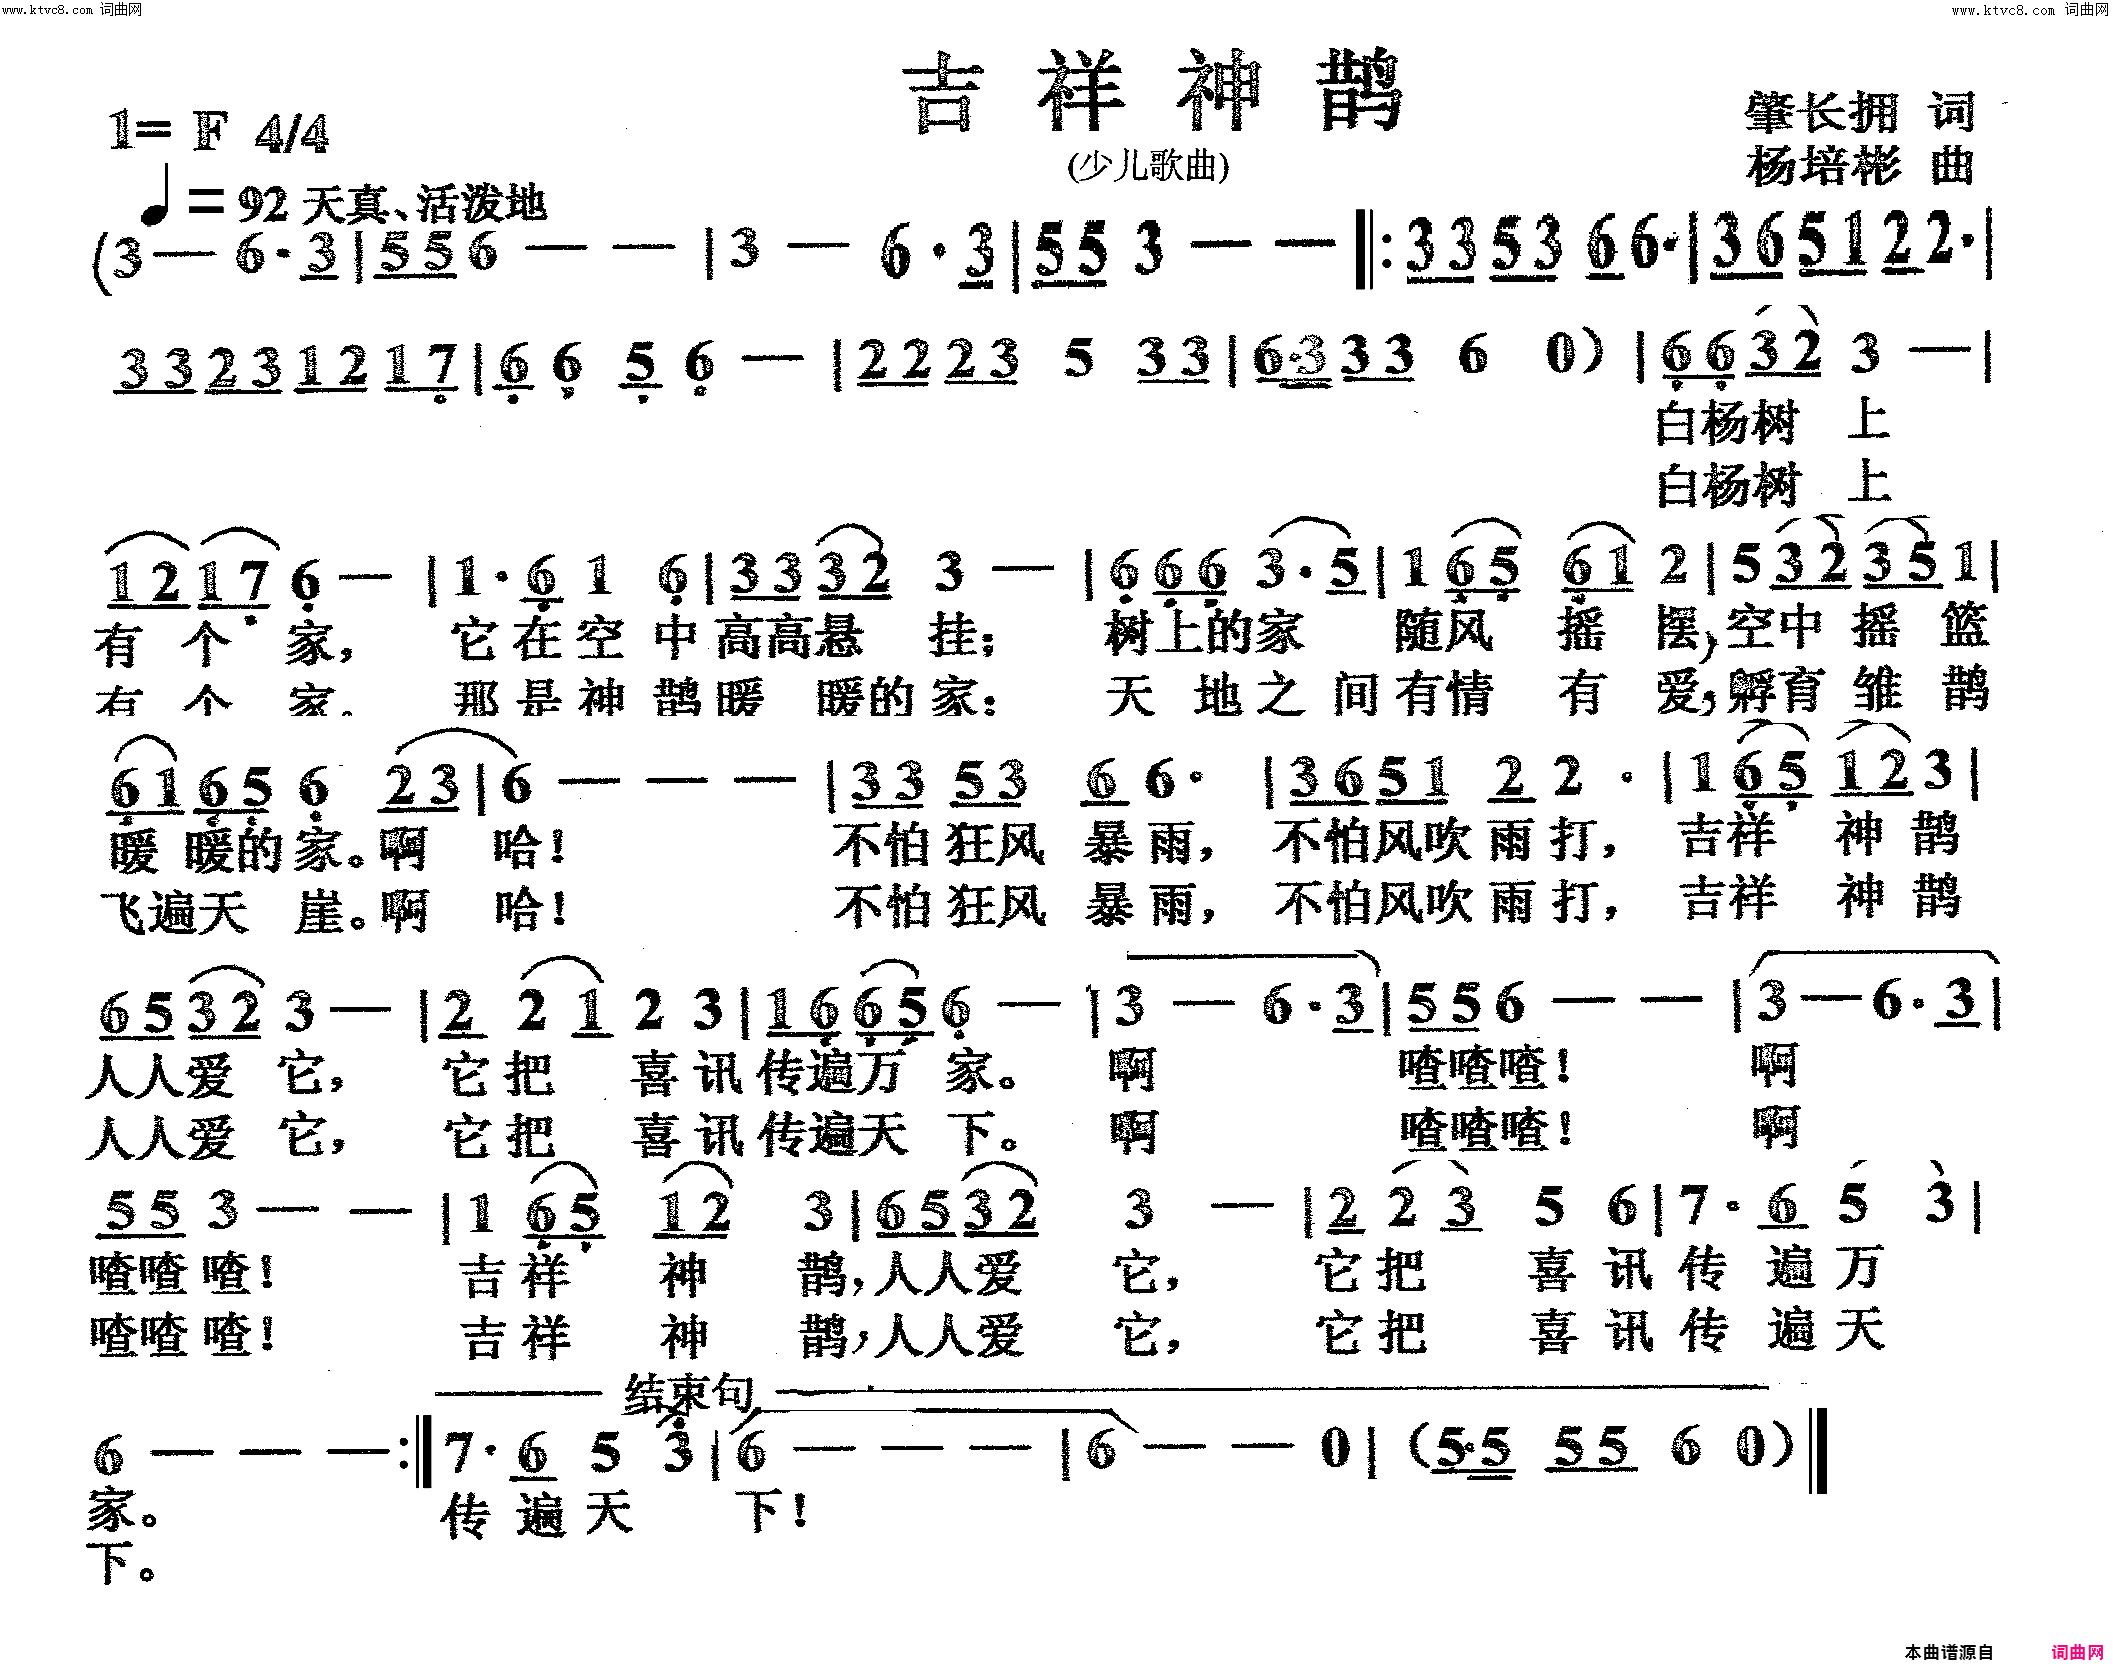 www.ktvc8.com 词曲网 www.ktvc8.com 词曲网
吉祥神鹊
(少儿歌曲)
1= F 4/4
肇长拥 词
杨培彬 曲
♩= 92 天真、活泼地
(3 — 6· 3 | 5 5 6 — — | 3 — 6· 3 | 5 5 3 — — ‖: 3 3 5 3 6 6· | 3 6 5 1 2 2· |
3 3 2 3 1 2 1 7 | 6 6 5 6 — | 2 2 2 3 5 3 3 | 6·3 3 3 6 0) | 6 6 3 2 3 — |
白杨树 上
白杨树 上
1 2 1 7 6 — | 1· 6 1 6 | 3 3 3 2 3 — | 6 6 6 3· 5 | 1 6 5 6 1 2 | 5 3 2 3 5 1 |
有 个 家, 它在空 中高高悬 挂; 树上的家 随风 摇 摆,空中 摇 篮
有 个 家, 那是神 鹊暖 暖的家; 天 地之 间有情 有 爱,孵育 雏 鹊
6 1 6 5 6 2 3 | 6 — — — | 3 3 5 3 6 6· | 3 6 5 1 2 2 · | 1 6 5 1 2 3 |
暖 暖的家。啊 哈! 不怕狂风 暴雨, 不怕风吹雨打, 吉祥 神 鹊
飞遍天 崖。啊 哈! 不怕狂风 暴雨, 不怕风吹雨打, 吉祥 神 鹊
6 5 3 2 3 — | 2 2 1 2 3 | 1 6 6 5 6 — | 3 — 6· 3 | 5 5 6 — — | 3 — 6· 3 |
人人爱 它, 它把 喜讯传遍万 家。 啊 喳喳喳! 啊
人人爱 它, 它把 喜讯传遍天 下。 啊 喳喳喳! 啊
5 5 3 — — | 1 6 5 1 2 3 | 6 5 3 2 3 — | 2 2 3 5 6 | 7· 6 5 3 |
喳喳喳! 吉祥 神 鹊,人人爱 它, 它把 喜讯传 遍万
喳喳喳! 吉祥 神 鹊,人人爱 它, 它把 喜讯传 遍天
结束句
6 — — — :‖ 7· 6 5 3 | 6 — — — | 6 — — 0 | (5·5 5 5 6 0) ‖
家。 传遍天 下!
下。
本曲谱源自 词曲网